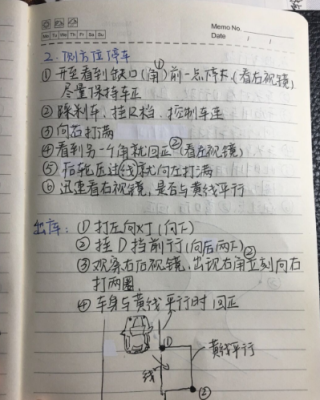 Memo No.
Mo Tu We Th Fr Sa Su
Date / /
2. 侧方位停车
① 开至看到缺口(角)前一点停下(看右视镜)
尽量保持车正
② 踩刹车、挂R档、控制车速
③ 向右打满
④ 看到另一个角就回正②(看左视镜)
⑤ 后轮压过线就向左打满
⑥ 迅速看右视镜,是否与黄线平行
出库:① 打左向灯(向下)
② 挂D挡前行(向后两下)
③ 观察右后视镜,出现右角②立刻向右
打两圈
④ 车身与黄线平行时回正
①
黄线平行
线
②